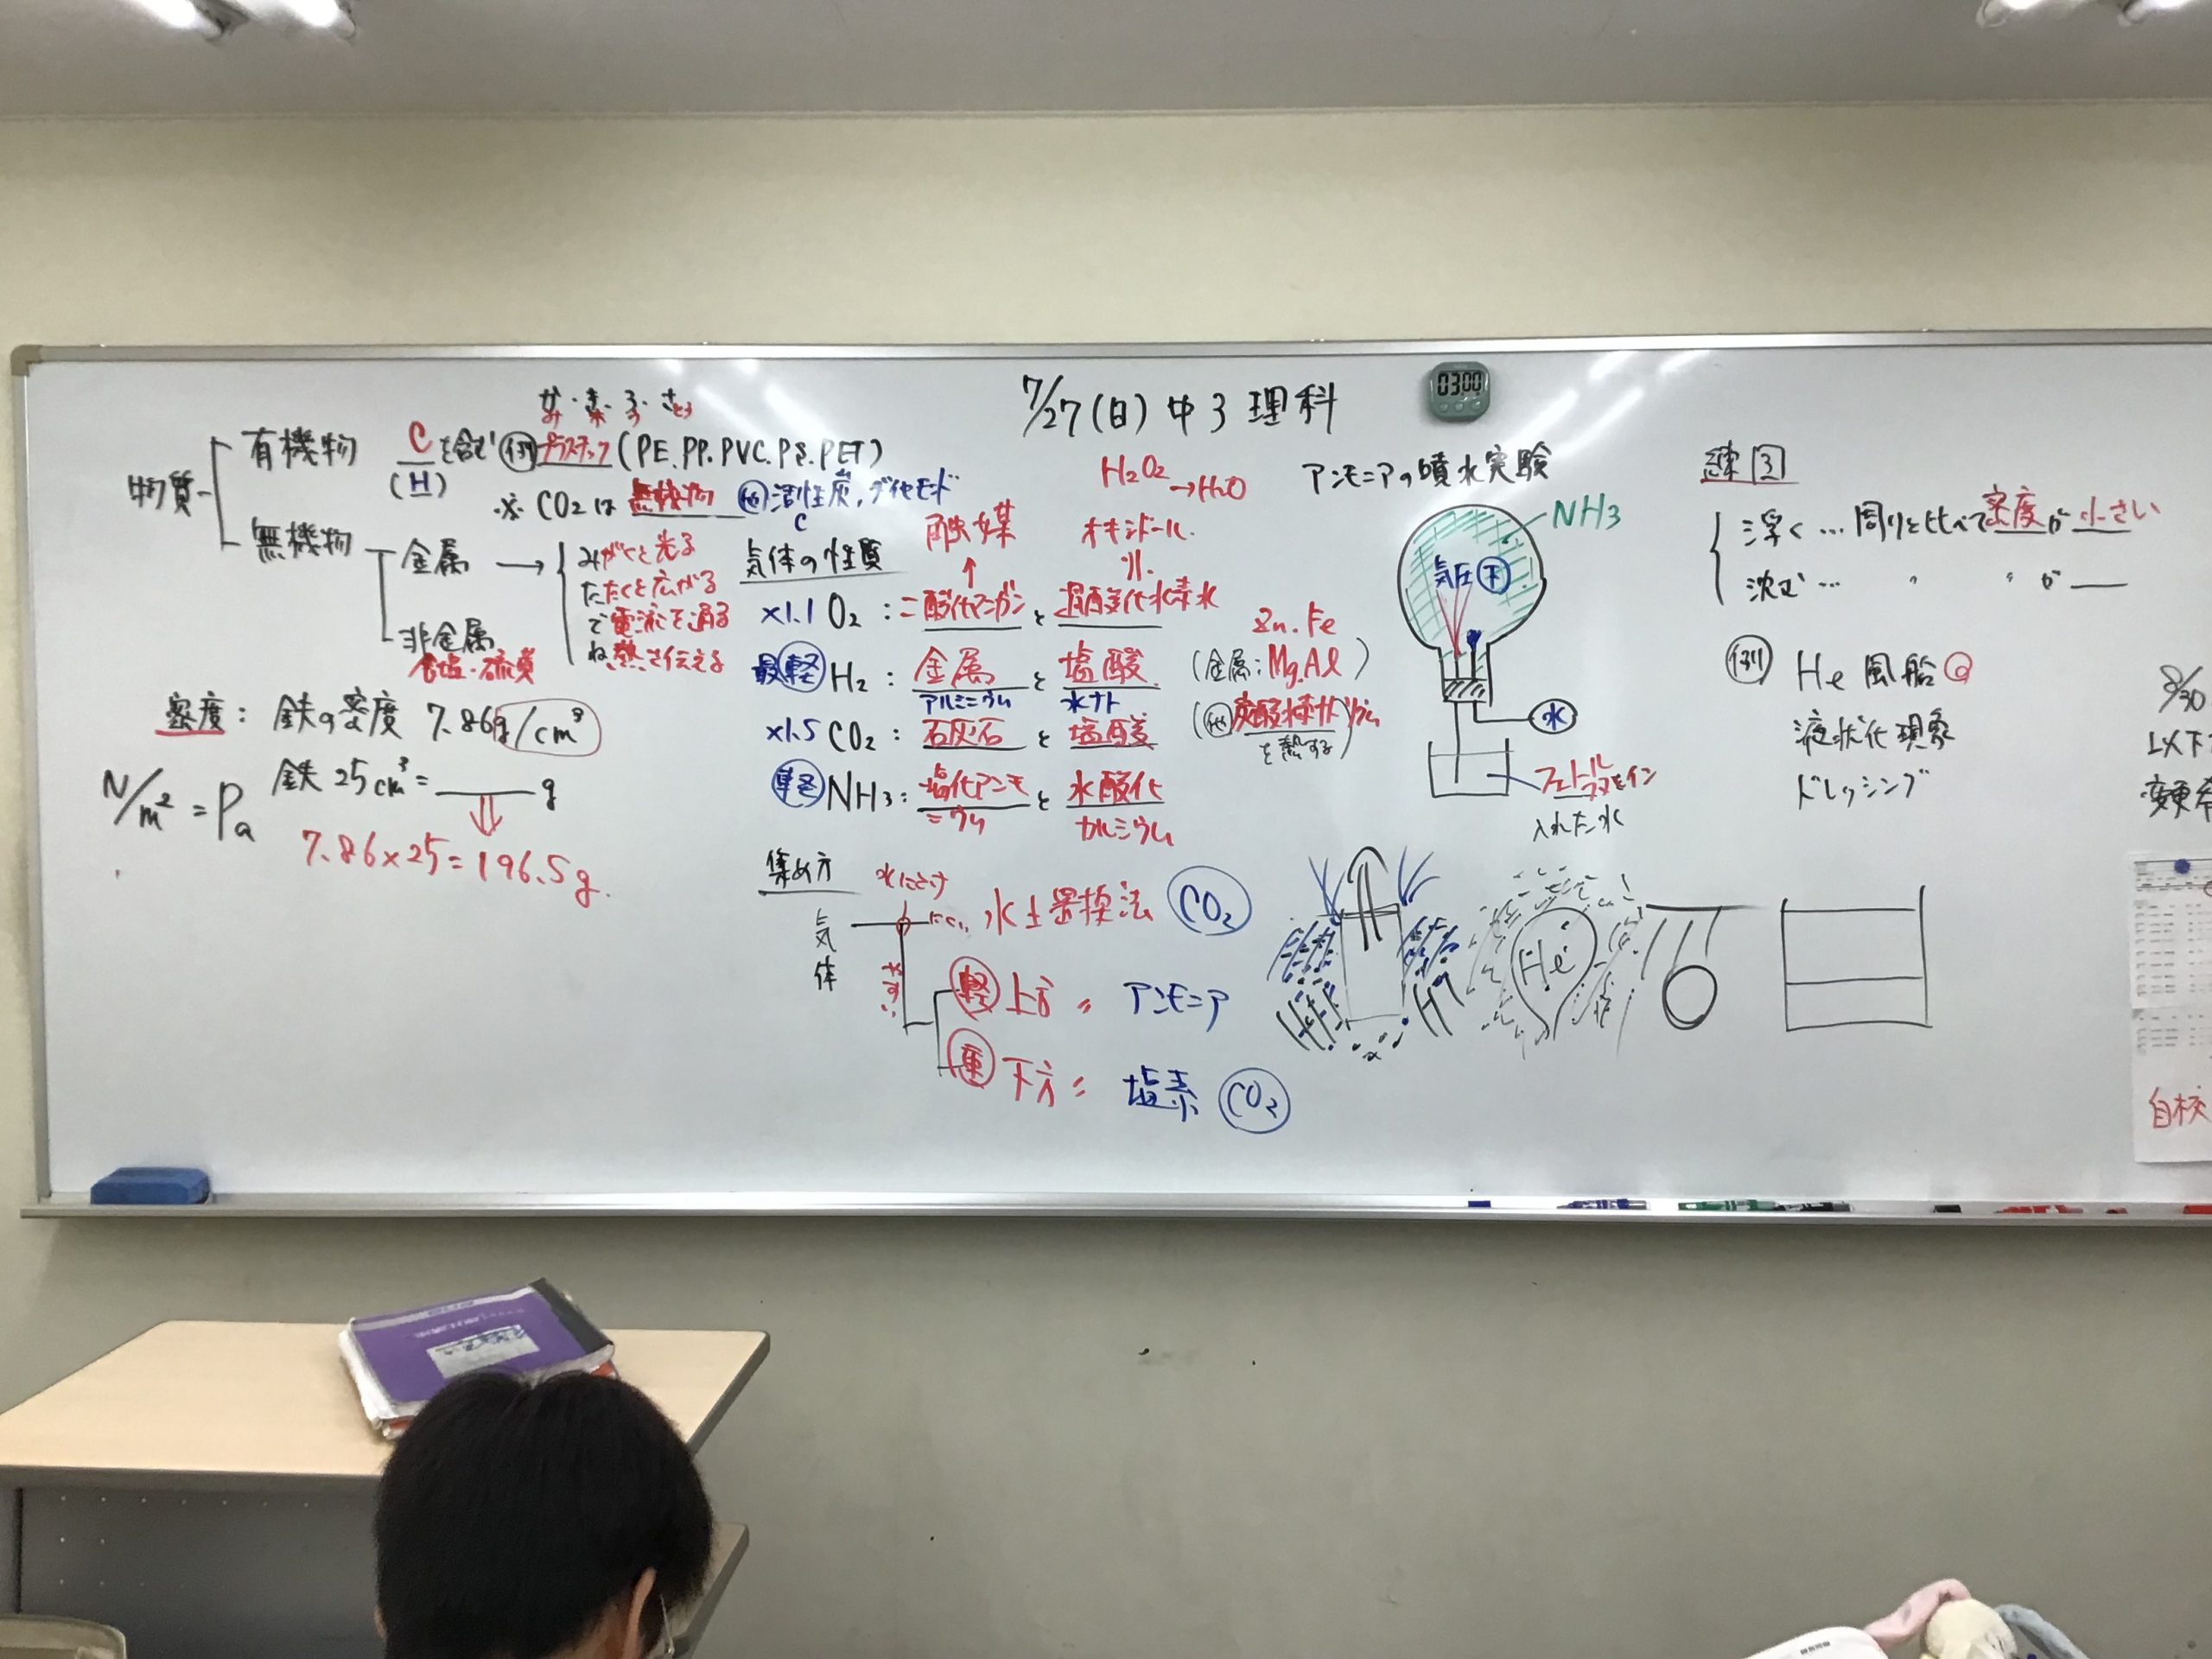 7/27(日)中3理科
03:00
か・き・ろ・さとう
物質
有機物 Cを含む 例 プラスチック(PE.PP.PVC.PS.PET)
(H)
※CO2は無機物 他 活性炭,ダイヤモンド
C
無機物
金属 → みがくと光る
たたくと広がる
で電流を通る
ね熱を伝える
非金属
食塩・硫黄
密度: 鉄の密度 7.86g/cm³
鉄25cm³=____g
N/m²=Pa
7.86×25=196.5g
気体の性質
触媒
H2O2→H2O
オキシドール
×1.1 O2:二酸化マンガンと過酸化水素水
最軽 H2:金属と塩酸 (金属:Mg.Al)
Zn.Fe
アルミニウム 水ナト
×1.5 CO2:石灰石と塩酸 (他 炭酸水素ナトリウム
を熱する)
軽 NH3:塩化アンモニウムと水酸化カルシウム
集め方
気体
水にとけ
にくい 水上置換法 CO2
やすい
軽 上方〃 アンモニア
重 下方〃 塩素 CO2
アンモニアの噴水実験
NH3
気圧下
水
フェノールフタレイン
入れた水
He
練③
浮く…周りと比べて密度が小さい
沈む… 〃 〃 が
例 He風船
液状化現象
ドレッシング
8/30
以下
変更
自校